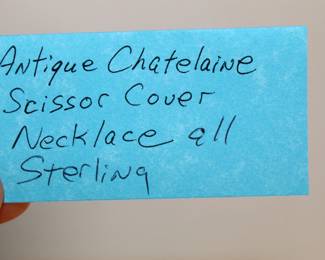 Antique Chatelaine
Scissor Cover
Necklace all
Sterling